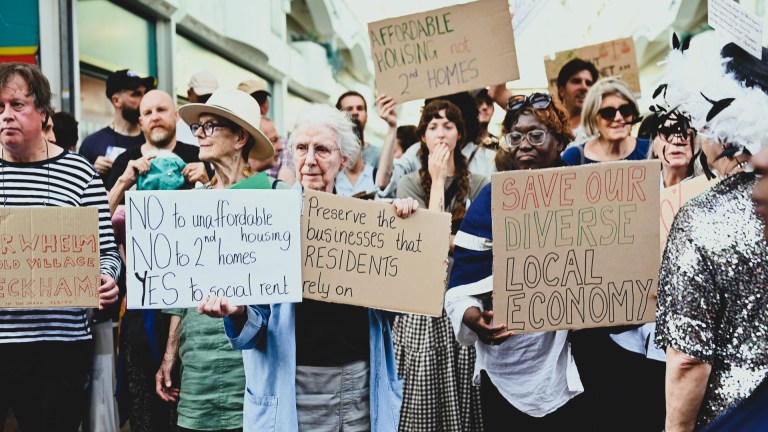 AFFORDABLE
HOUSING not
2nd HOMES
NO to unaffordable
housing
NO to 2nd homes
YES to social rent
Preserve the
businesses that
RESIDENTS
rely on
SAVE OUR
DIVERSE
LOCAL
ECONOMY
WHELM
OLD VILLAGE
ECKHAM